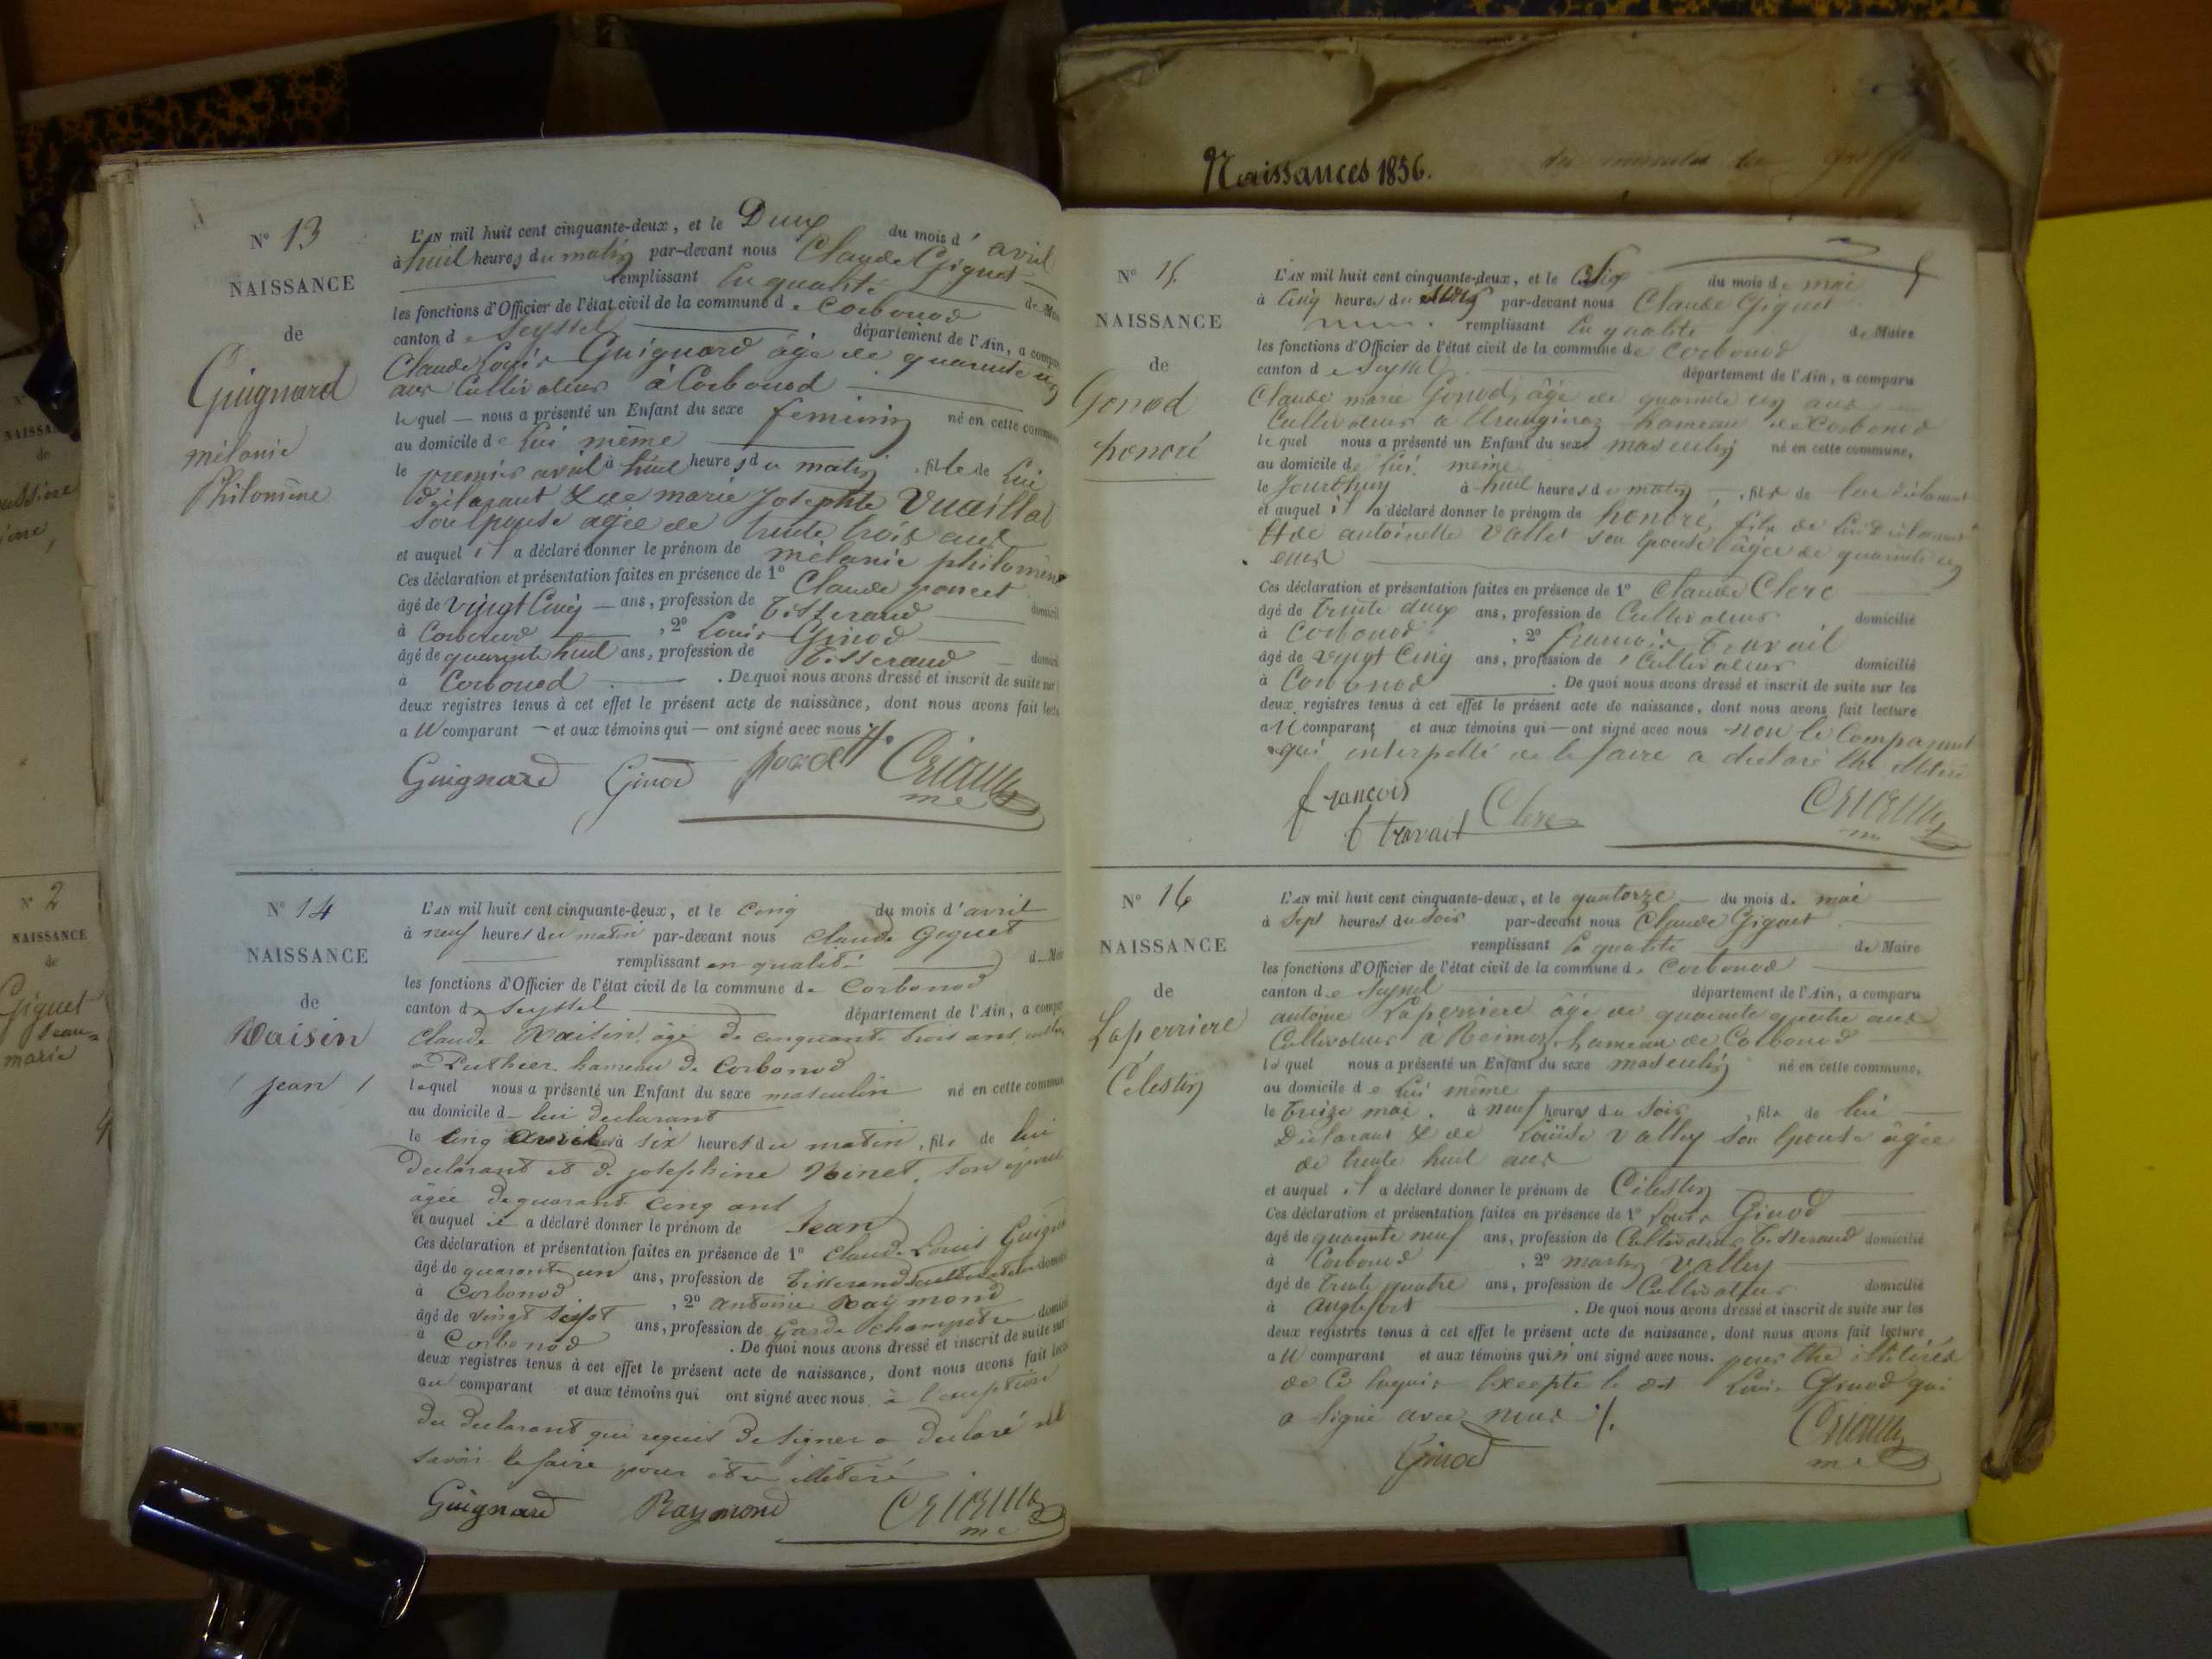 Naissances 1856.
N° 13
NAISSANCE
de
Guignard
mélanie
Philomène
L'AN mil huit cent cinquante-deux, et le Deux du mois d'avril
à huit heures du matin par-devant nous Claude Giguet
remplissant En qualité de
les fonctions d'Officier de l'état civil de la commune de Corbonod
canton de Seyssel département de l'Ain, a
Claude Louis Guignard âgé de quarante un
ans Cultivateur à Corbonod
lequel nous a présenté un Enfant du sexe feminin né en cette
au domicile de lui même
le premier avril à huit heures du matin, fille de lui
déclarant & de marie Josephte Vuaillat
son Epouse âgée de trente trois ans
et auquel il a déclaré donner le prénom de mélanie philomène
Ces déclaration et présentation faites en présence de 1° Claude poncet
âgé de vingt Cinq ans, profession de Tisserand
à Corbonod, 2° Louis Ginod
âgé de quarante huit ans, profession de Tisserand
à Corbonod. De quoi nous avons dressé et inscrit de suite sur
deux registres tenus à cet effet le présent acte de naissance, dont nous avons fait
au comparant et aux témoins qui ont signé avec nous
Guignard Ginod
N° 14
NAISSANCE
de
Raisin
jean
L'AN mil huit cent cinquante-deux, et le cinq du mois d'avril
à neuf heures du matin par-devant nous Claude Giguet
remplissant en qualité
les fonctions d'Officier de l'état civil de la commune de Corbonod
canton de Seyssel département de l'Ain, a
Claude Raisin, âgé de cinquante trois ans
hameau de Corbonod
lequel nous a présenté un Enfant du sexe masculin né en cette
au domicile de lui declarant
le cinq avril à six heures du matin, fils de lui
declarant et de josephine son épouse
âgée de quarante cinq ans
et auquel il a déclaré donner le prénom de Jean
Ces déclaration et présentation faites en présence de 1° Claude Louis
âgé de quarante un ans, profession de Tisserand
à Corbonod, 2° antoine Raymond
âgé de vingt sept ans, profession de Garde champêtre
à Corbonod. De quoi nous avons dressé et inscrit de suite sur
deux registres tenus à cet effet le présent acte de naissance, dont nous avons fait
au comparant et aux témoins qui ont signé avec nous à l'exception
du declarant qui requis de signer a declaré ne
savoir le faire pour être illétéré
Guignard Raymond
N° 15
NAISSANCE
de
Gonod
honoré
L'AN mil huit cent cinquante-deux, et le Six du mois de mai
à Cinq heures du par-devant nous Claude Giguet
remplissant En qualité de Maire
les fonctions d'Officier de l'état civil de la commune de Corbonod
canton de Seyssel département de l'Ain, a comparu
Claude marie Gonod, âgé de quarante un ans
Cultivateur à hameau de Corbonod
lequel nous a présenté un Enfant du sexe masculin né en cette commune,
au domicile de lui même
le à huit heures du matin, fils de lui déclarant
et auquel il a déclaré donner le prénom de honoré, fils de lui déclarant
& de antoinette Vallet son Epouse âgée de quarante un
ans
Ces déclaration et présentation faites en présence de 1° Claude Clerc
âgé de trente deux ans, profession de Cultivateur domicilié
à Corbonod, 2° francois Travail
âgé de vingt Cinq ans, profession de Cultivateur domicilié
à Corbonod. De quoi nous avons dressé et inscrit de suite sur les
deux registres tenus à cet effet le présent acte de naissance, dont nous avons fait lecture
au comparant et aux témoins qui ont signé avec nous non le Comparant
qui interpellé de le faire a déclaré
françois Clerc
travail
N° 16
NAISSANCE
de
Laperriere
Célestin
L'AN mil huit cent cinquante-deux, et le quatorze du mois de mai
à Sept heures du soir par-devant nous Claude Giguet
remplissant En qualité de Maire
les fonctions d'Officier de l'état civil de la commune de Corbonod
canton de Seyssel département de l'Ain, a comparu
antoine Laperriere âgé de quarante quatre ans
Cultivateur à hameau de Corbonod
lequel nous a présenté un Enfant du sexe masculin né en cette commune,
au domicile de lui même
le treize mai, à neuf heures du soir, fils de lui
Déclarant & de Louise Valley son Epouse âgée
de trente huit ans
et auquel il a déclaré donner le prénom de Célestin
Ces déclaration et présentation faites en présence de 1° Louis Ginod
âgé de quarante neuf ans, profession de Cultivateur Tisserand domicilié
à Corbonod, 2° martin Valley
âgé de trente quatre ans, profession de Cultivateur domicilié
à anglefort. De quoi nous avons dressé et inscrit de suite sur les
deux registres tenus à cet effet le présent acte de naissance, dont nous avons fait lecture
au comparant et aux témoins qui n'ont signé avec nous. pour être illitérés
de Ce Excepté le dit Louis Ginod qui
a Signé avec nous
Ginod
N° 2
NAISSANCE
de
Giguet
Jean-
marie